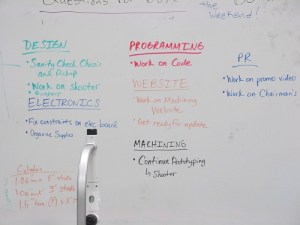 Questions for
Weekend!
DESIGN
• Sanity Check Chris's
and Pickup
• Work on Shooter
ELECTRONICS
• Fix constraints on elec board
• Organize Supplies
PROGRAMMING
• Work on Code
WEBSITE
• Work on Machining
Website
• Get ready for update
MACHINING
• Continue Prototyping
↳ Shooter
PR
• Work on promo video
• Work on Chairman's